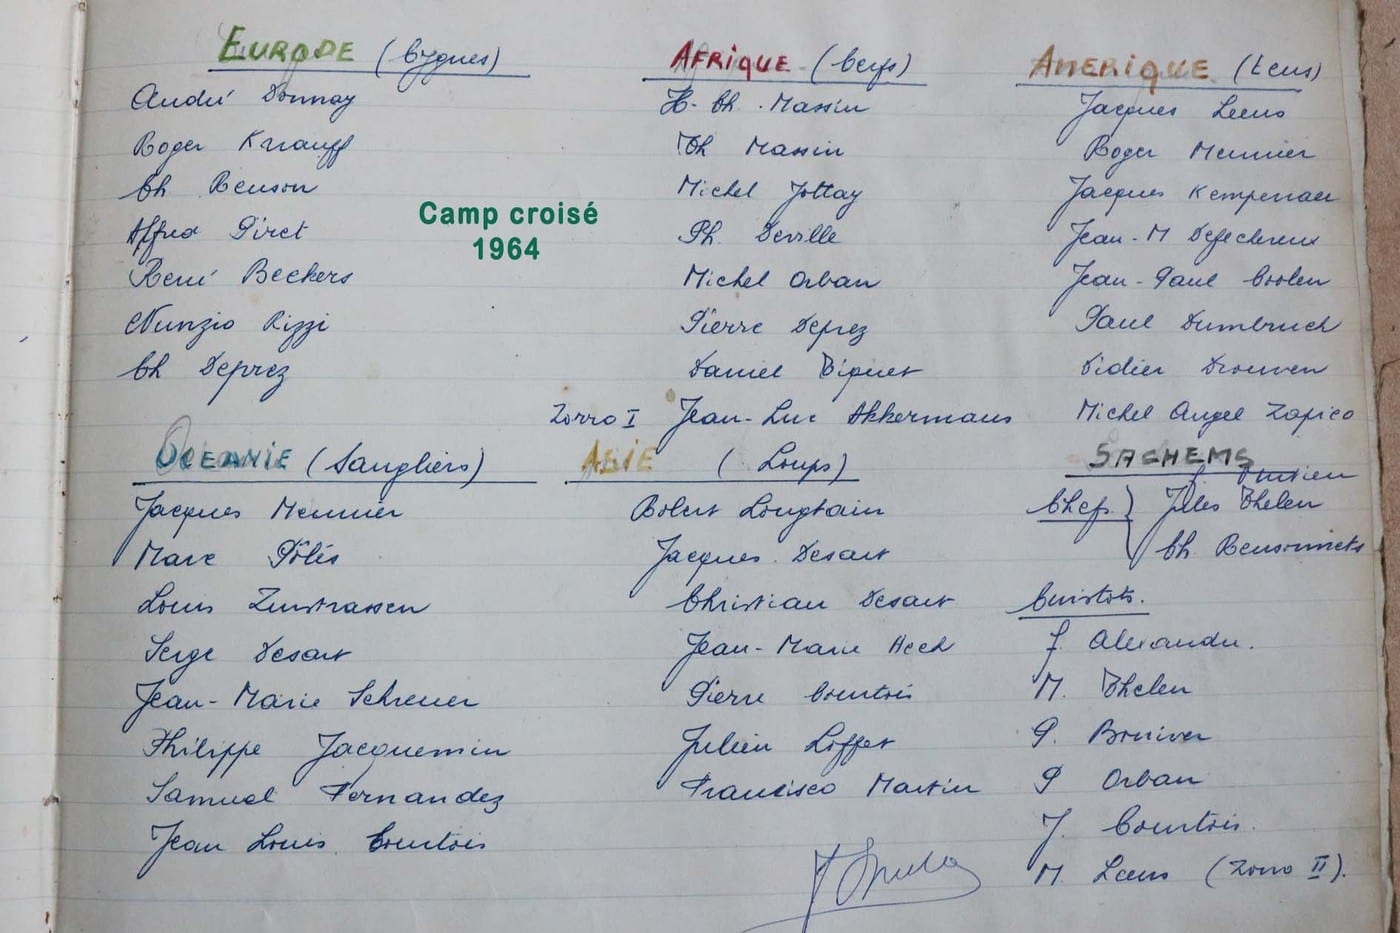 EUROPE (Cygnes)
André Donnay
Roger Knauff
Ch Renson
Alfred Piret
René Beckers
Nunzio Rizzi
Ch Deprez
Camp croisé
1964
AFRIQUE (Cerfs)
H. Ch. Massin
Th Massin
Michel Jottay
Ph. Deville
Michel Orban
Pierre Deprez
Daniel Piquet
Zorro I Jean-Luc Akkermans
AMERIQUE (Elans)
Jacques Leens
Roger Meunier
Jacques Kempenaer
Jean-M Defechereux
Jean-Paul Coolen
Paul Dumbruch
Didier Drouven
Michel Angel Zapico
OCEANIE (Sangliers)
Jacques Meunier
Marc Pôlis
Louis Zinstrassen
Serge Desart
Jean-Marie Schreuer
Philippe Jacquemin
Samuel Fernandez
Jean Louis Courtois
ASIE (Loups)
Robert Longtain
Jacques Desart
Christian Desart
Jean-Marie Heck
Pierre Courtois
Julien Loffet
Francisco Martin
SACHEMS
Chefs
Jules Thelen
Ch. Rensonnets
Cuistots.
J. Alexandre.
M. Thelen
P. Bouiver
P Orban
J. Courtois.
M. Leens (Zorro II).